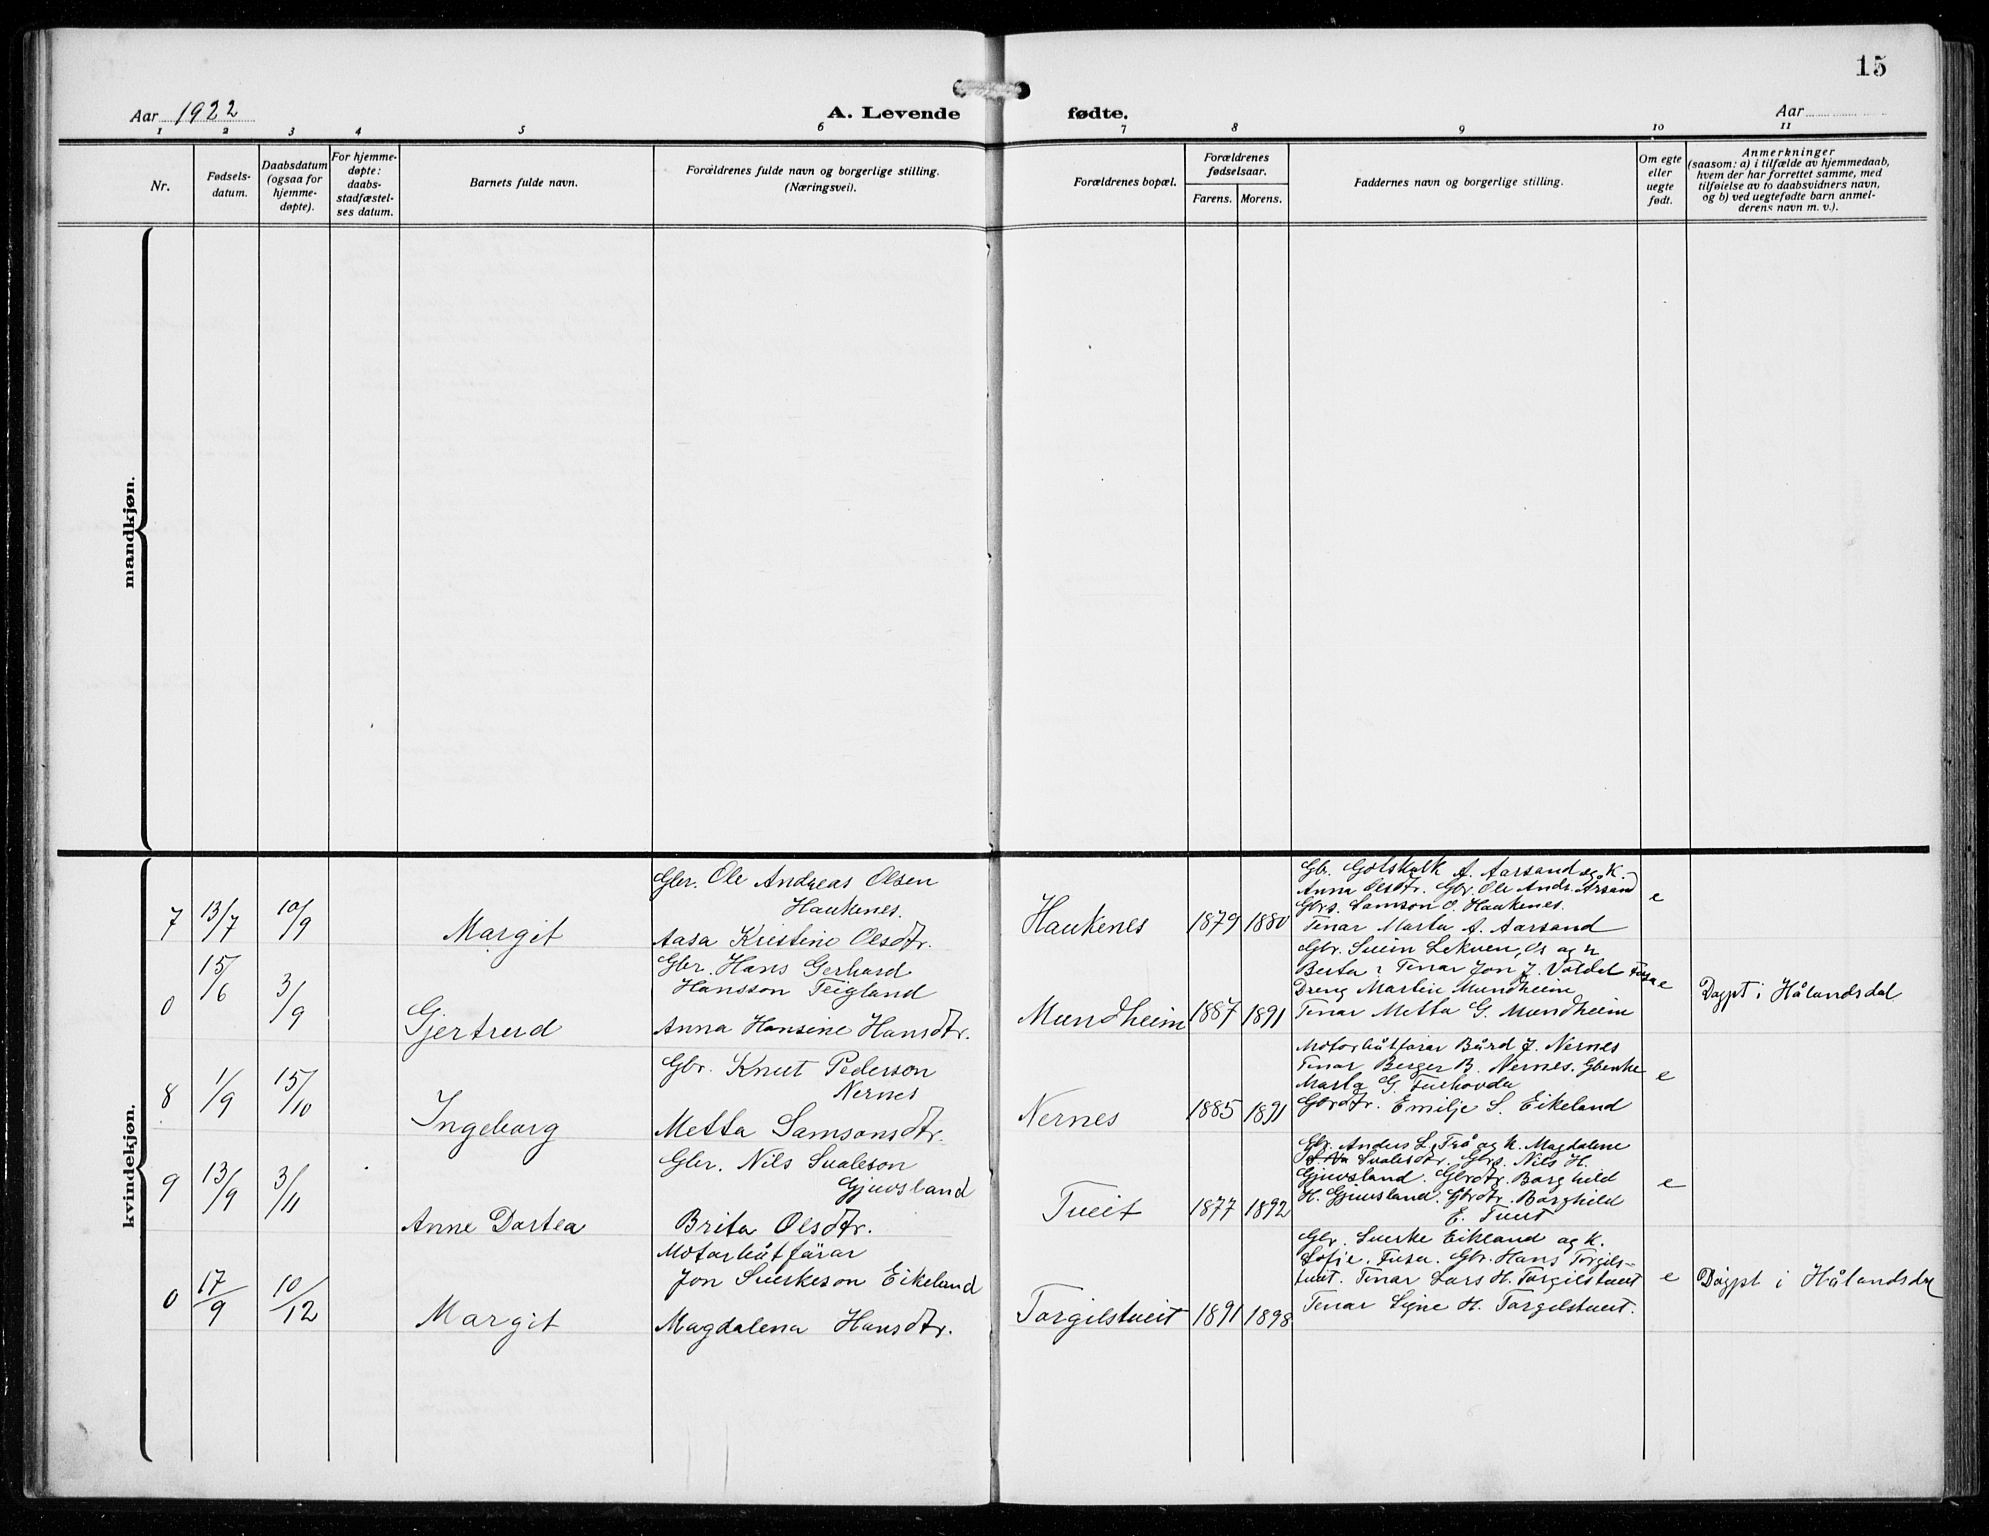 15
Aar 1922
A. Levende fødte.
Aar
1 2 3 4 5 6 7 8 9 10 11
Nr.
Fødsels-
datum.
Daabsdatum
(ogsaa for
hjemme-
døpte).
For hjemme-
døpte:
daabs-
stadfæstel-
ses datum.
Barnets fulde navn.
Forældrenes fulde navn og borgerlige stilling.
(Næringsvei).
Forældrenes bopæl.
Forældrenes
fødselsaar.
Farens. Morens.
Faddernes navn og borgerlige stilling.
Om egte
eller
uegte
født.
Anmerkninger
(saasom: a) i tilfælde av hjemmedaab,
hvem der har forrettet samme, med
tilføielse av to daabsvidners navn,
og b) ved uegtefødte barn anmel-
derens navn m. v.).
mandkjøn.
kvindekjøn.
7 13/7 10/9
Margit
Gbr. Ole Andreas Olsen
Haukenes.
Aasa Kristine Olsdtr.
Haukenes 1879 1880
Gbr. Gotskalk A. Aarsand og K.
Anna Olsdtr. Gbr. Ole Ands. Arsand
Gbrs. Samson O. Haukenes.
Tenar Marta A. Aarsand
e
0 15/6 3/9
Gjertrud
Gbr. Hans Gerhard
Hansson Teigland
Anna Hansine Hansdtr.
Mundheim 1887 1891
Gbr. Svein Lekven, og
Berta Tenar Jon J. Valdel
Dreng Martin Mundheim
Tenar Metta G. Mundheim
e
Døypt i Hålandsdal
8 1/9 15/10
Ingeborg
Gbr. Knut Pederson
Nernes
Metta Samsonsdtr.
Nernes 1885 1891
Motorbåtførar Bård J. Nernes
Tenar Berger B. Nernes. Gbenke
Marta G.
Gbrdtr. Emilje S. Eikeland
e
9 13/9 3/11
Anne Dortea
Gbr. Nils Sjualeson
Gjuvsland
Brita Olsdtr.
Tveit 1877 1892
Gbr. Anders L. Trå og K. Magdalene
Sualesdtr. Gbrs. Nils H.
Gjuvsland. Gbrdtr. Borghild
H. Gjuvsland. Gbrdtr. Borghild
E. Tveit
e
0 17/9 10/12
Margit
Motorbåtførar
Jon Sverkeson Eikeland
Magdalena Hansdtr.
Torgilstveit 1891 1898
Gbr. Sverke Eikland og K.
Sofie. Fusa. Gbr. Hans Torgils-
tveit. Tenar Lars H. Torgilstveit
Tenar Signe H. Torgilstveit.
e
Døypt i Hålandsdal